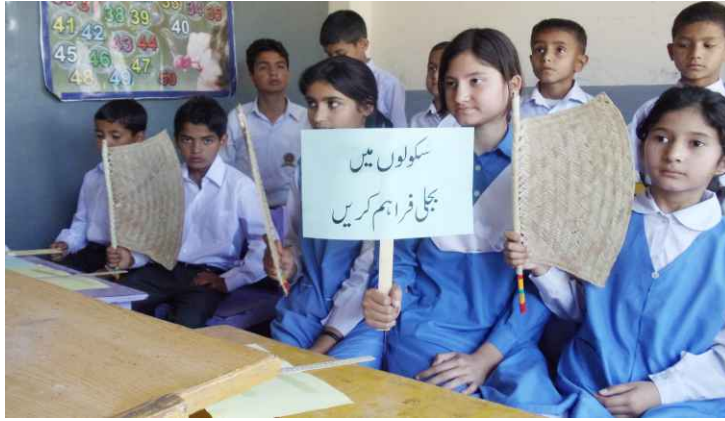 38 39
40
41 42
43 44
45 46
47
48 49
50
سکولوں میں
بجلی فراہم کریں